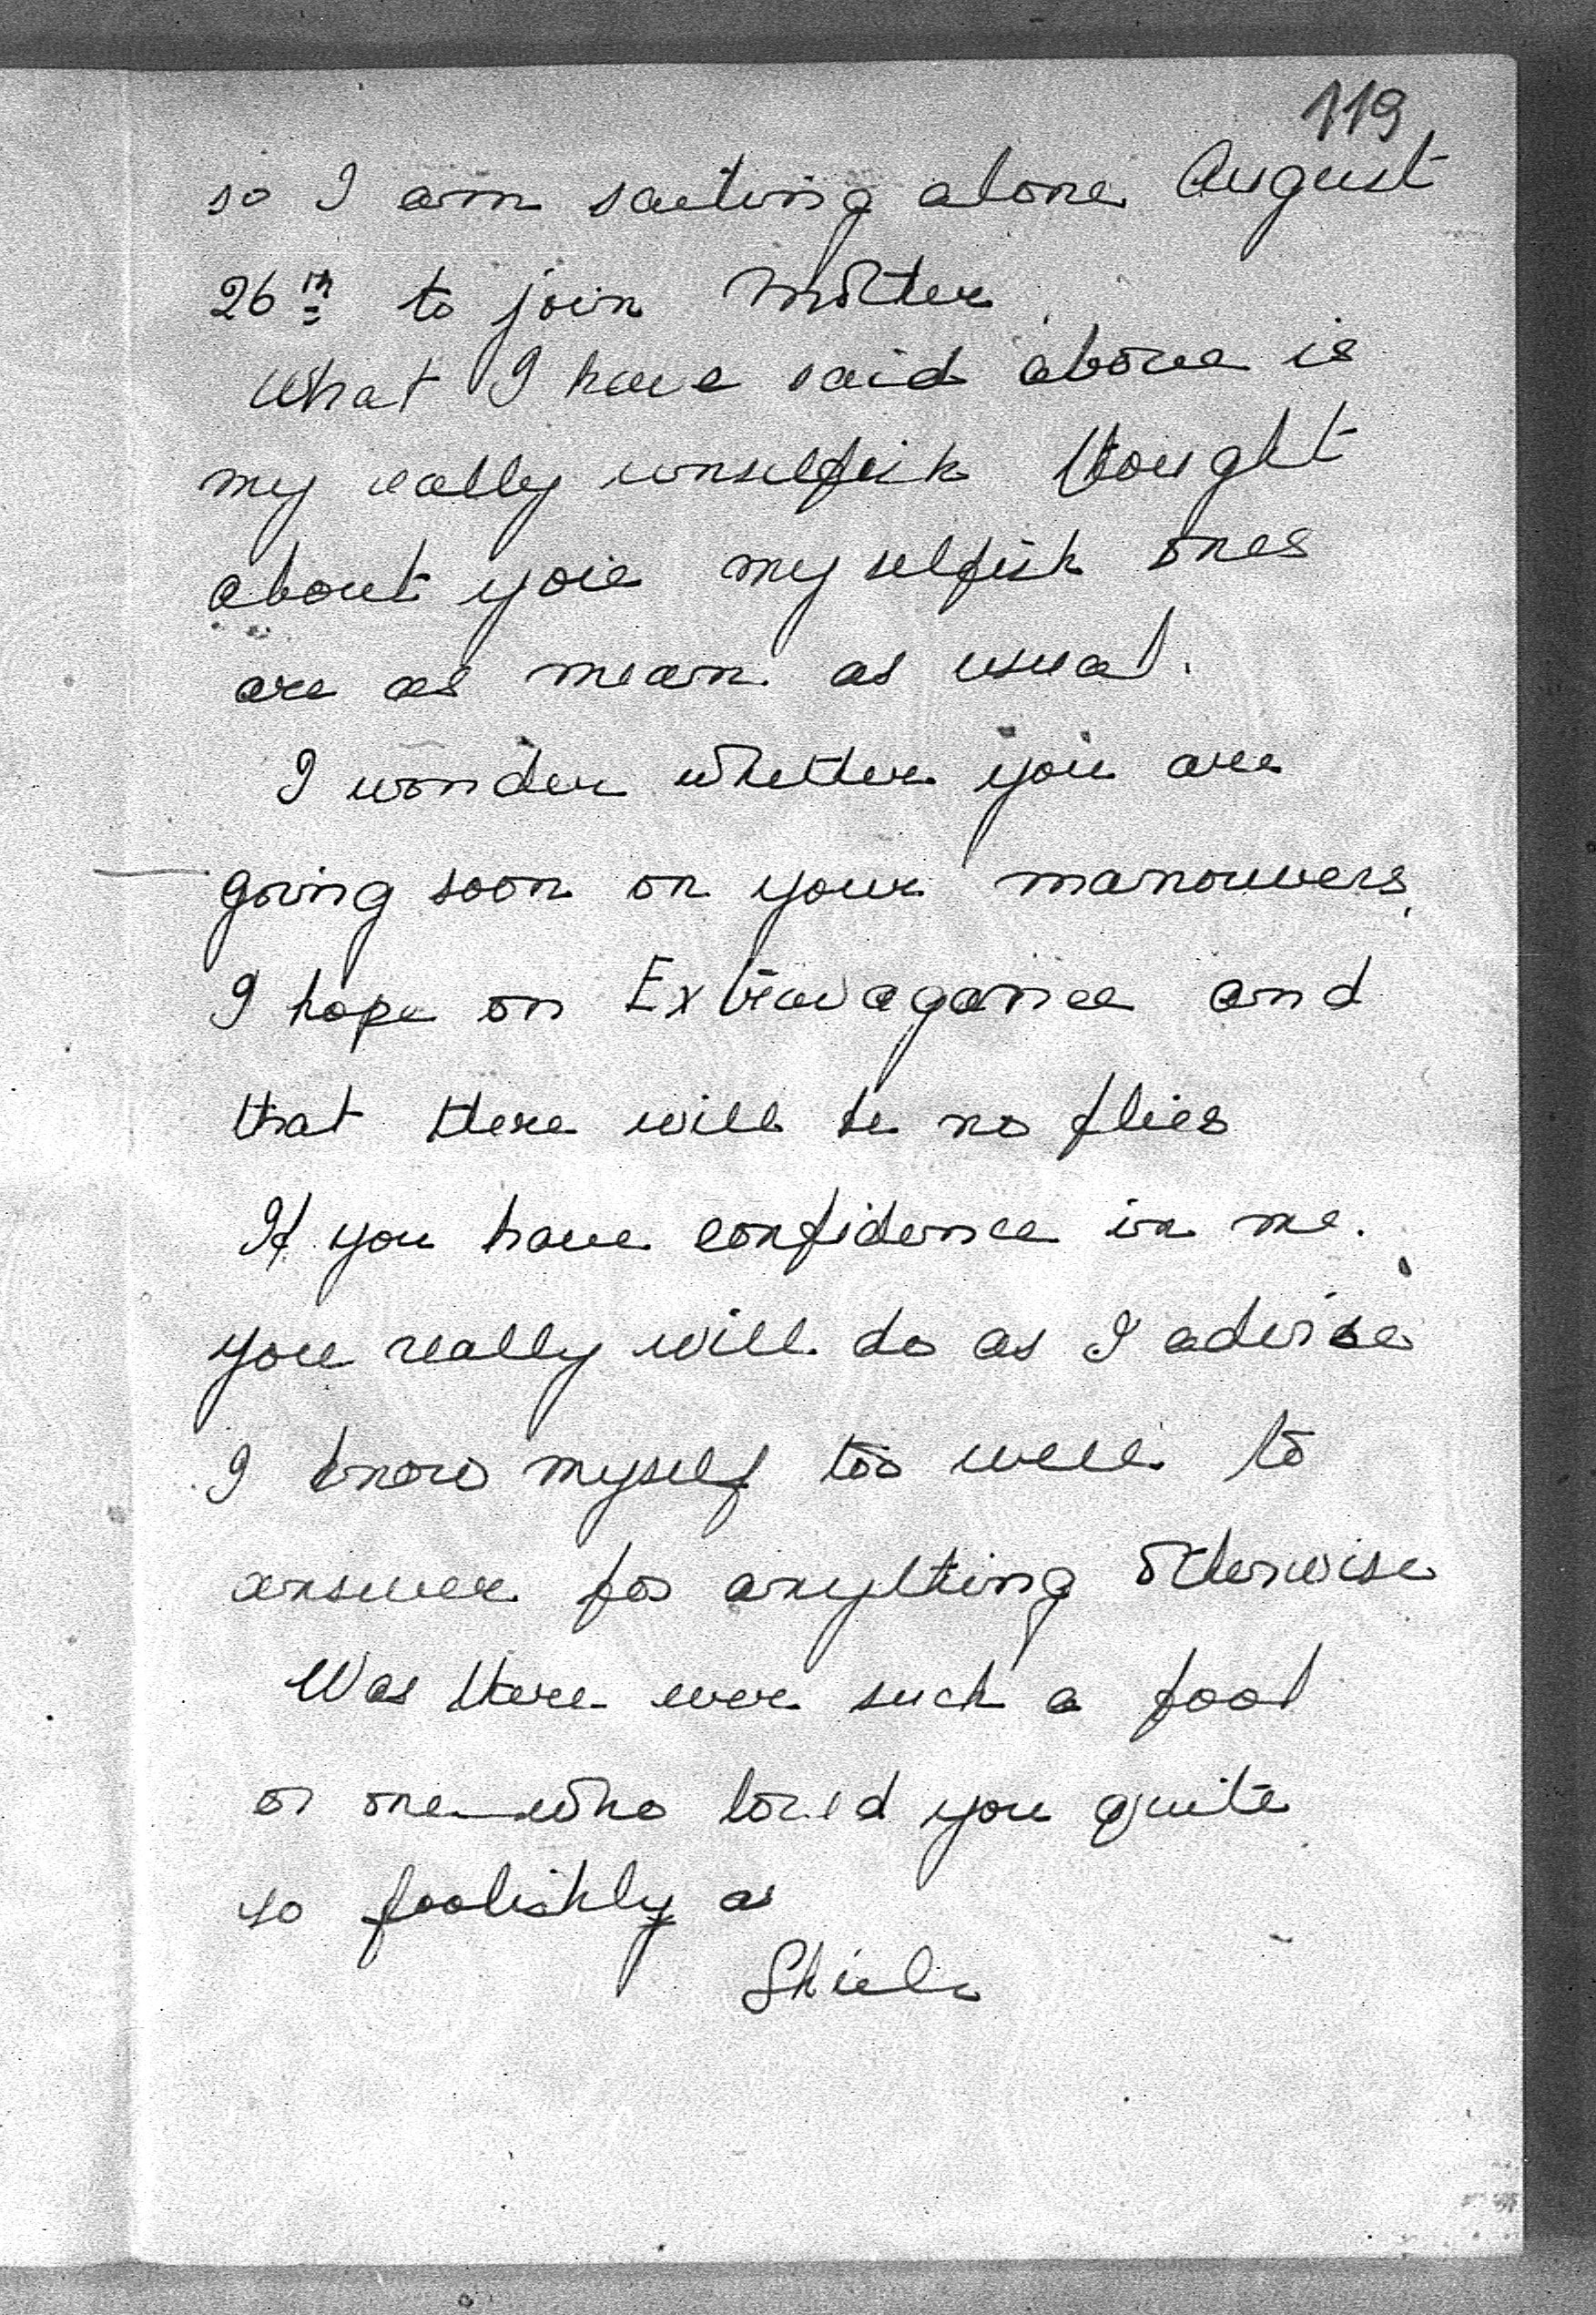 119
so I am sailing alone August
26th to join Mother
What I have said above is
my really unselfish thought
about you my selfish ones
are as mean as usual.
I wonder whether you are
going soon on your manouvers.
I hope on Extravagance and
that there will be no flies
If you have confidence in me.
you really will do as I advise
I know myself too well to
answer for anything otherwise
Was there ever such a fool
or one who loved you quite
so foolishly as
Shiela